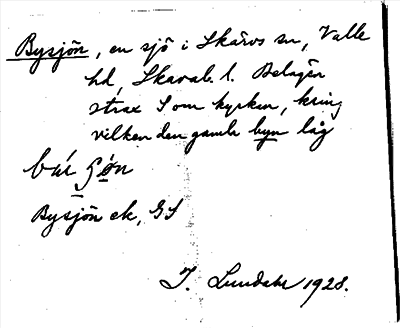 Bysjön, en sjö i Skärvs sn, Valle
hd, Skarab. l. Belägen
strax S om kyrkan, kring
vilken den gamla byn låg
Bysjön ek, GS
I. Lundahl 1928.